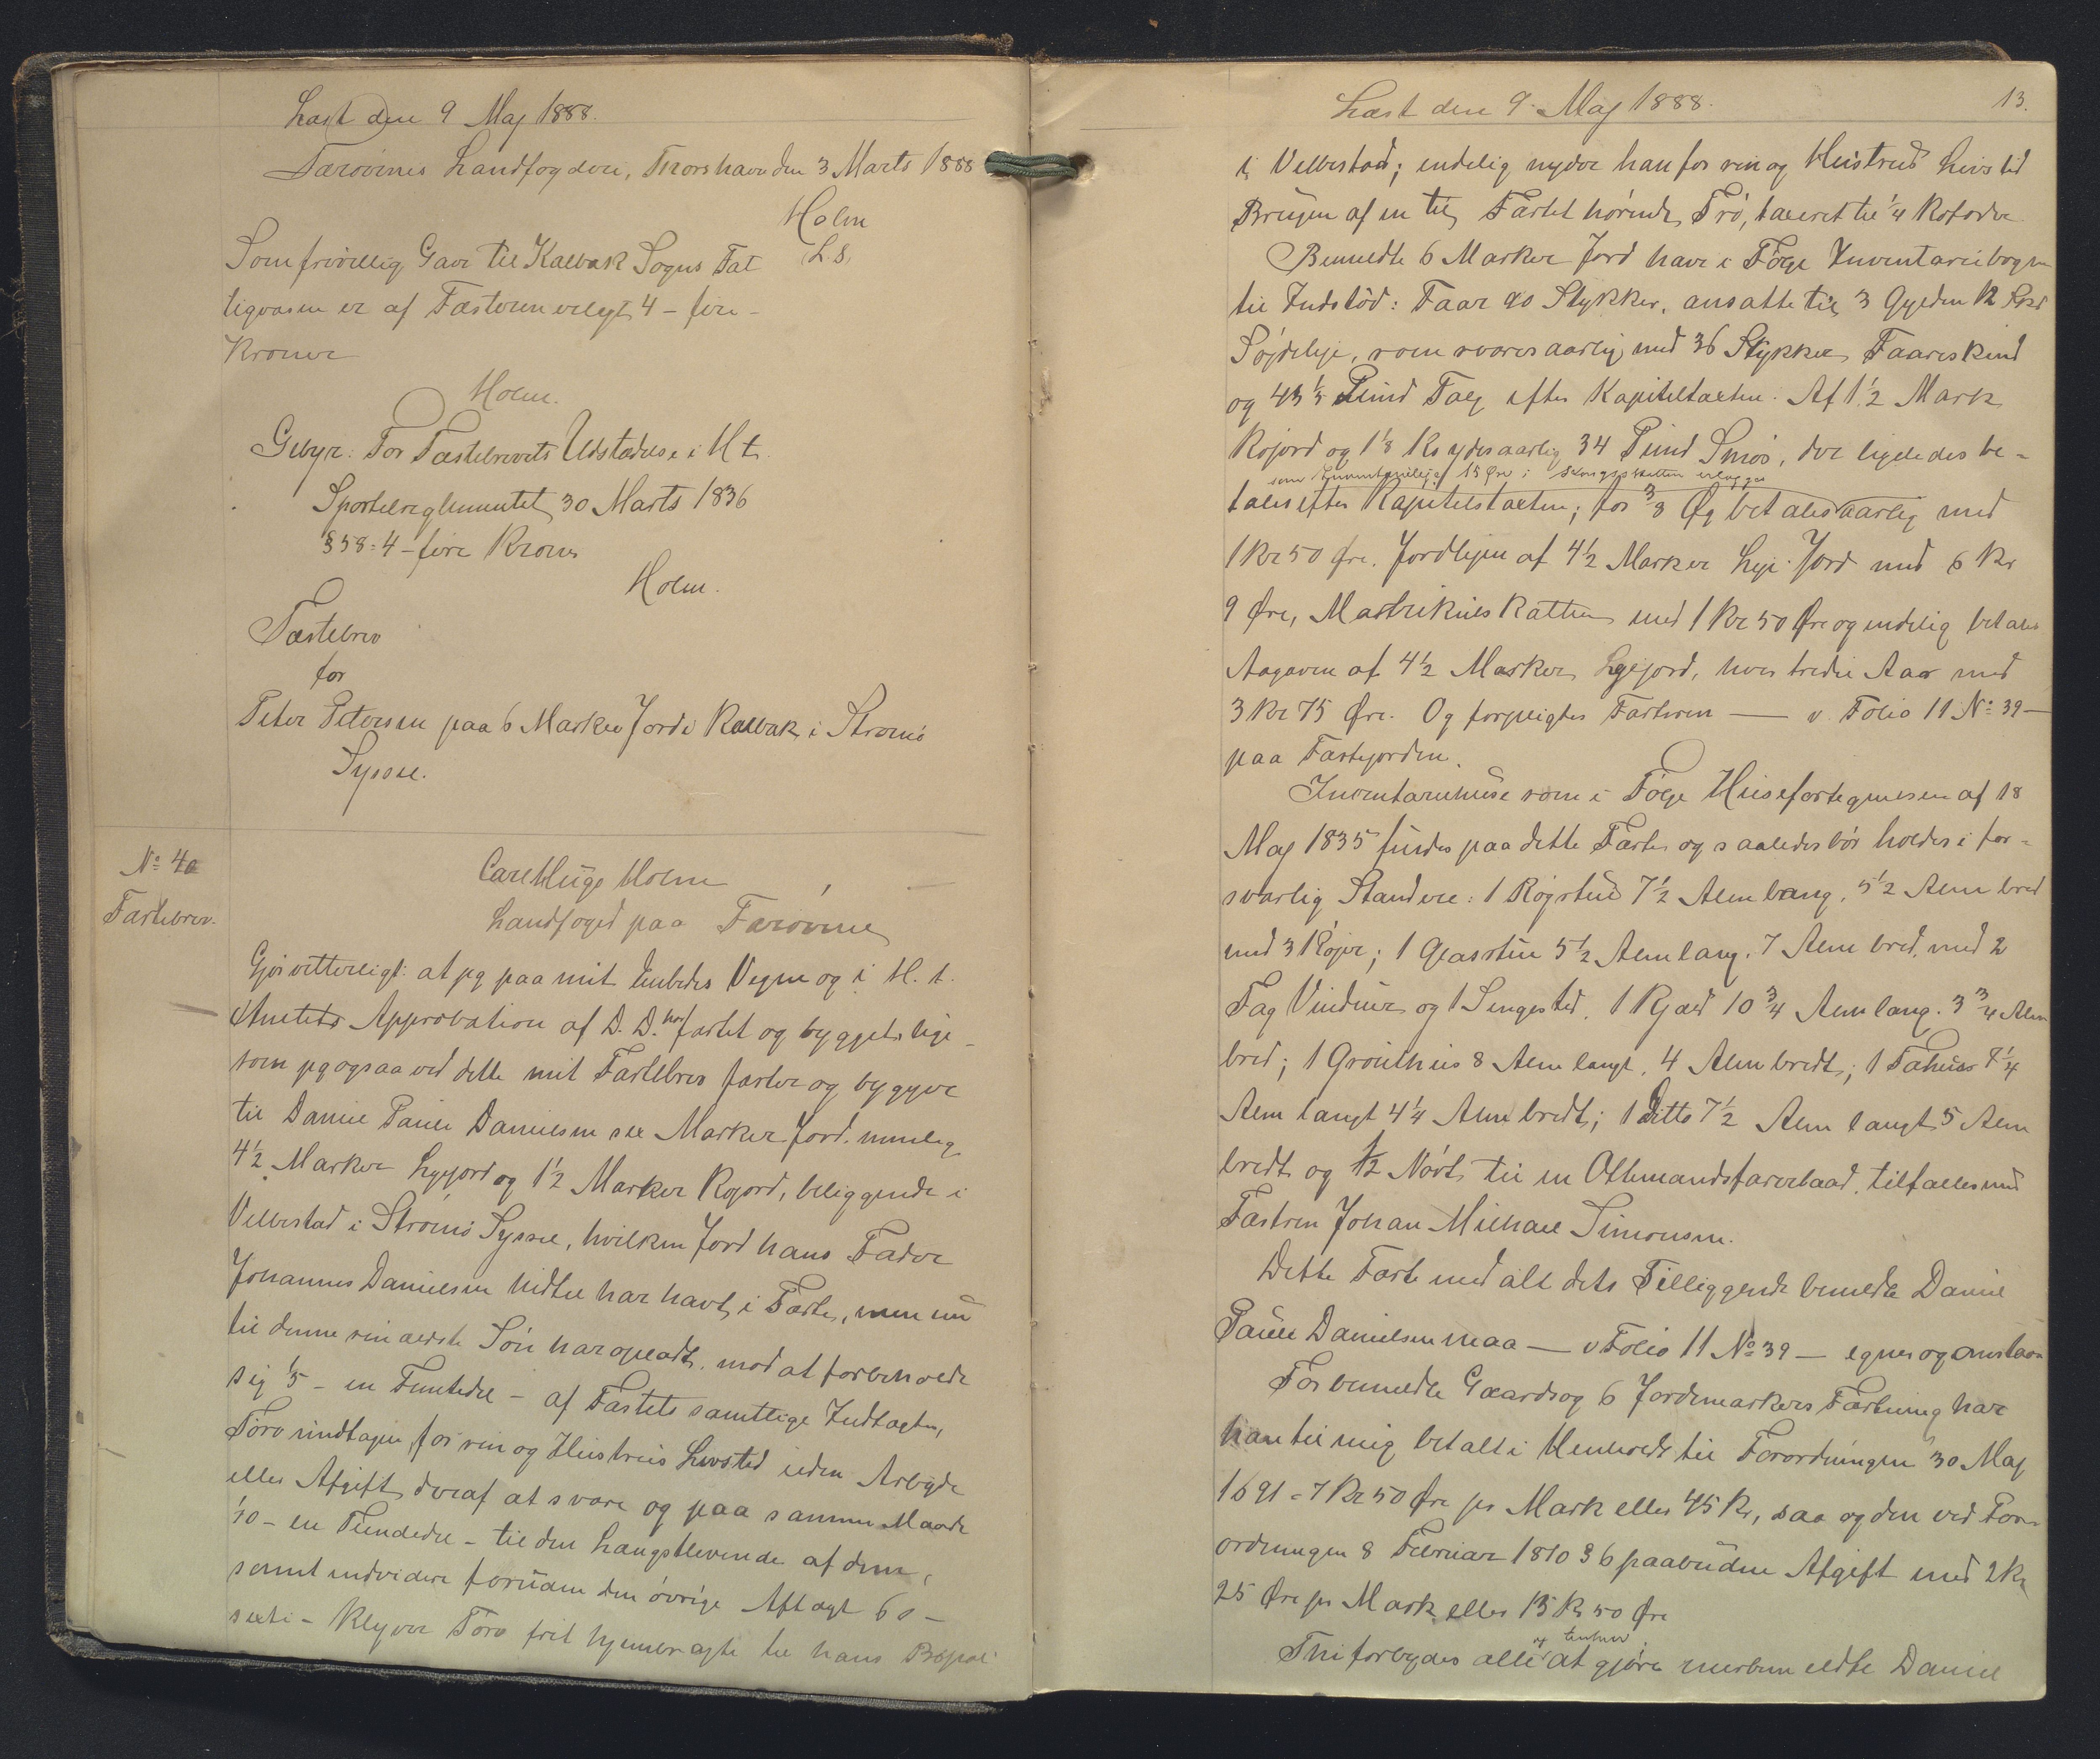 Læst den 9 Maj 1888.
Færøernes Landfogderi, Thorshavn den 3 Marts 1888
Holm
L.S.
Som frivillig Gave til Kalbak Sogns Fat
tigvæsen er af Fæsteren erlagt 4 - fire -
Kroner
Holm.
Gebyr: For Fæstebrevets Udstædelse i H t
Sportelreglementet 30 Marts 1836
§ 58: 4 - fire Kroner
Holm.
Fæstebrev
for
Peter Petersen paa 6 Marker Jord i Kalbak i Strømø
Syssel.
No 40
Fæstebrev.
Carl Hugo Holm
Landfoged paa Færøerne
Gjør vitterligt: at jeg paa mit Embedes Vegne og i H. t.
Amtets Approbation af D. D. har fæstet og bygget lige-
som jeg ogsaa ved dette mit Fæstebrev fæster og bygger
til Daniel Paule Danielsen sex Marker Jord, nemlig
4½ Marker Lejejord og 1½ Marker Kojord, beliggende i
Velbestad i Strømø Syssel, hvilken Jord hans Fader
Johannes Danielsen hidtil har havt i Fæste, men nu
til denne sin ældste Søn har opladt, mod at forbeholde
sig ⅕ - en Femtedel - af Fæstets samtlige Indtægter,
Tørv undtagen, for sin og Hustrus Livstid uden Arbejde
eller Afgift deraf at svare og paa samme Maade
1/10 - en Tiendedel - til den Længstlevende af dem,
samt endvidere foruden den øvrige Aftægt 60 -
sexti - Klyver Tørv frit hjembragte til hans Bopæl
Læst den 9. Maj 1888.
13.
i Velbestad; endelig nyder han for sin og Hustrus Livstid
Brugen af en til Fæstet hørende Trø, taxeret til ¼ Kofoder
Bemeldte 6 Marker Jord have i Følge Inventariebogen
til Indstød: Faar 90 Stykker, ansatte til 3 Gylden 12 Skd
Søjdeleje, som svares aarlig med 36 Stykker Faareskind
og 43⅓ Pund Talg efter Kapitelstaxten. Af 1½ Mark
Kojord og 1⅛ Ko ydes aarlig 34 Pund Smør, der ligeledes be-
som Inventarieleje af 15 Øre i Kongsskatten erlægges
tales efter Kapitelstaxten; for ⅜ Øg betales aarlig med
1 Kr 50 Øre. Jordlejen af 4½ Marker Leje Jord med 6 Kr
9 Øre, Matrikulskatten med 1 Kr 50 Øre og endelig betales
Aagaven af 4½ Marker Lejejord, hver tredie Aar med
3 Kr 75 Øre. Og forpligtes Fæsteren — v. Folio 11 No 39 —
paa Fæstejorden.
Inventariehuse som i Følge Husefortegnelsen af 18
Maj 1835 findes paa dette Fæste og saaledes bør holdes i for-
svarlig Stand ere: 1 Røgstue 7½ Alen lang, 5½ Alen bred
med 3 Køjer; 1 Glasstue 5½ Alen lang. 7 Alen bred, med 2
Fag Vinduer og 1 Sengested, 1 Kjæld 10¾ Alen lang. 3¾ Alen
bred; 1 Grouthus 8 Alen langt, 4 Alen bredt; 1 Fæhuus 7¼
Alen langt 4¼ Alen bredt; 1 Ditto 7½ Alen langt 5 Alen
bredt og ½ Nøst til en Ottemandsfarerbaad, tilfælles med
Fæsteren Johan Michael Simonsen.
Dette Fæste med alt dets Tilliggende bemeldte Daniel
Paule Danielsen maa — v Folio 11 No 39 — egnes og anstaar
For bemeldte Gaards og 6 Jordemarkers Fæstning har
han til mig betalt i Henhold til Forordningen 30 Maj
1691 = 7 Kr 50 Øre pr Mark eller 45 Kr, saa og den ved For-
ordningen 8 Februar 1810 § 6 paabudne Afgift med 2 Kr
25 Øre pr Mark eller 13 Kr 50 Øre
og enhver
Thi forbydes alle at gjøre mersbemeldte Daniel